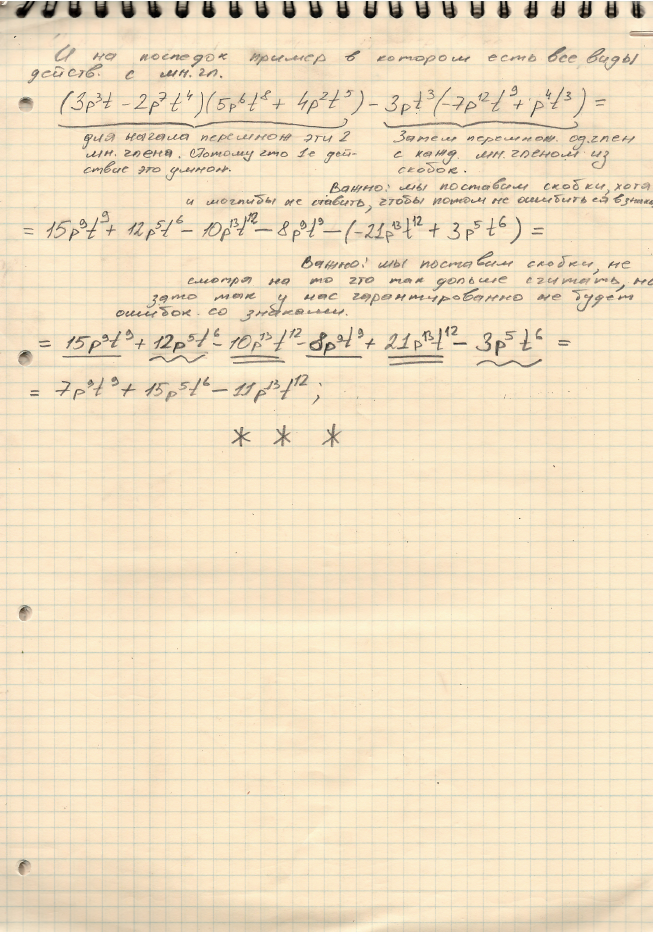 И на последок пример в котором есть все виды
действ. с мн. чл.
(3p³t - 2p⁷t⁴)(5p⁶t⁸ + 4p²t⁵) - 3pt³(-7p¹²t⁹ + p⁴t³) =
для начала перемнож эти 2
мн. члена. Потому что 1е дей-
ствие это умнож.
Затем перемнож. од. член
с кажд. мн. членом из
скобок.
Важно: мы поставим скобки, хотя
и могли бы не ставить, чтобы потом не ошибиться в знаках
= 15p⁹t⁹ + 12p⁵t⁶ - 10p¹³t¹² - 8p⁹t⁹ - (-21p¹³t¹² + 3p⁵t⁶) =
Важно: мы поставим скобки, не
смотря на то что так дольше считать, но
зато так у нас гарантированно не будет
ошибок со знаками.
= 15p⁹t⁹ + 12p⁵t⁶ - 10p¹³t¹² - 8p⁹t⁹ + 21p¹³t¹² - 3p⁵t⁶ =
= 7p⁹t⁹ + 15p⁵t⁶ - 11p¹³t¹²;
* * *